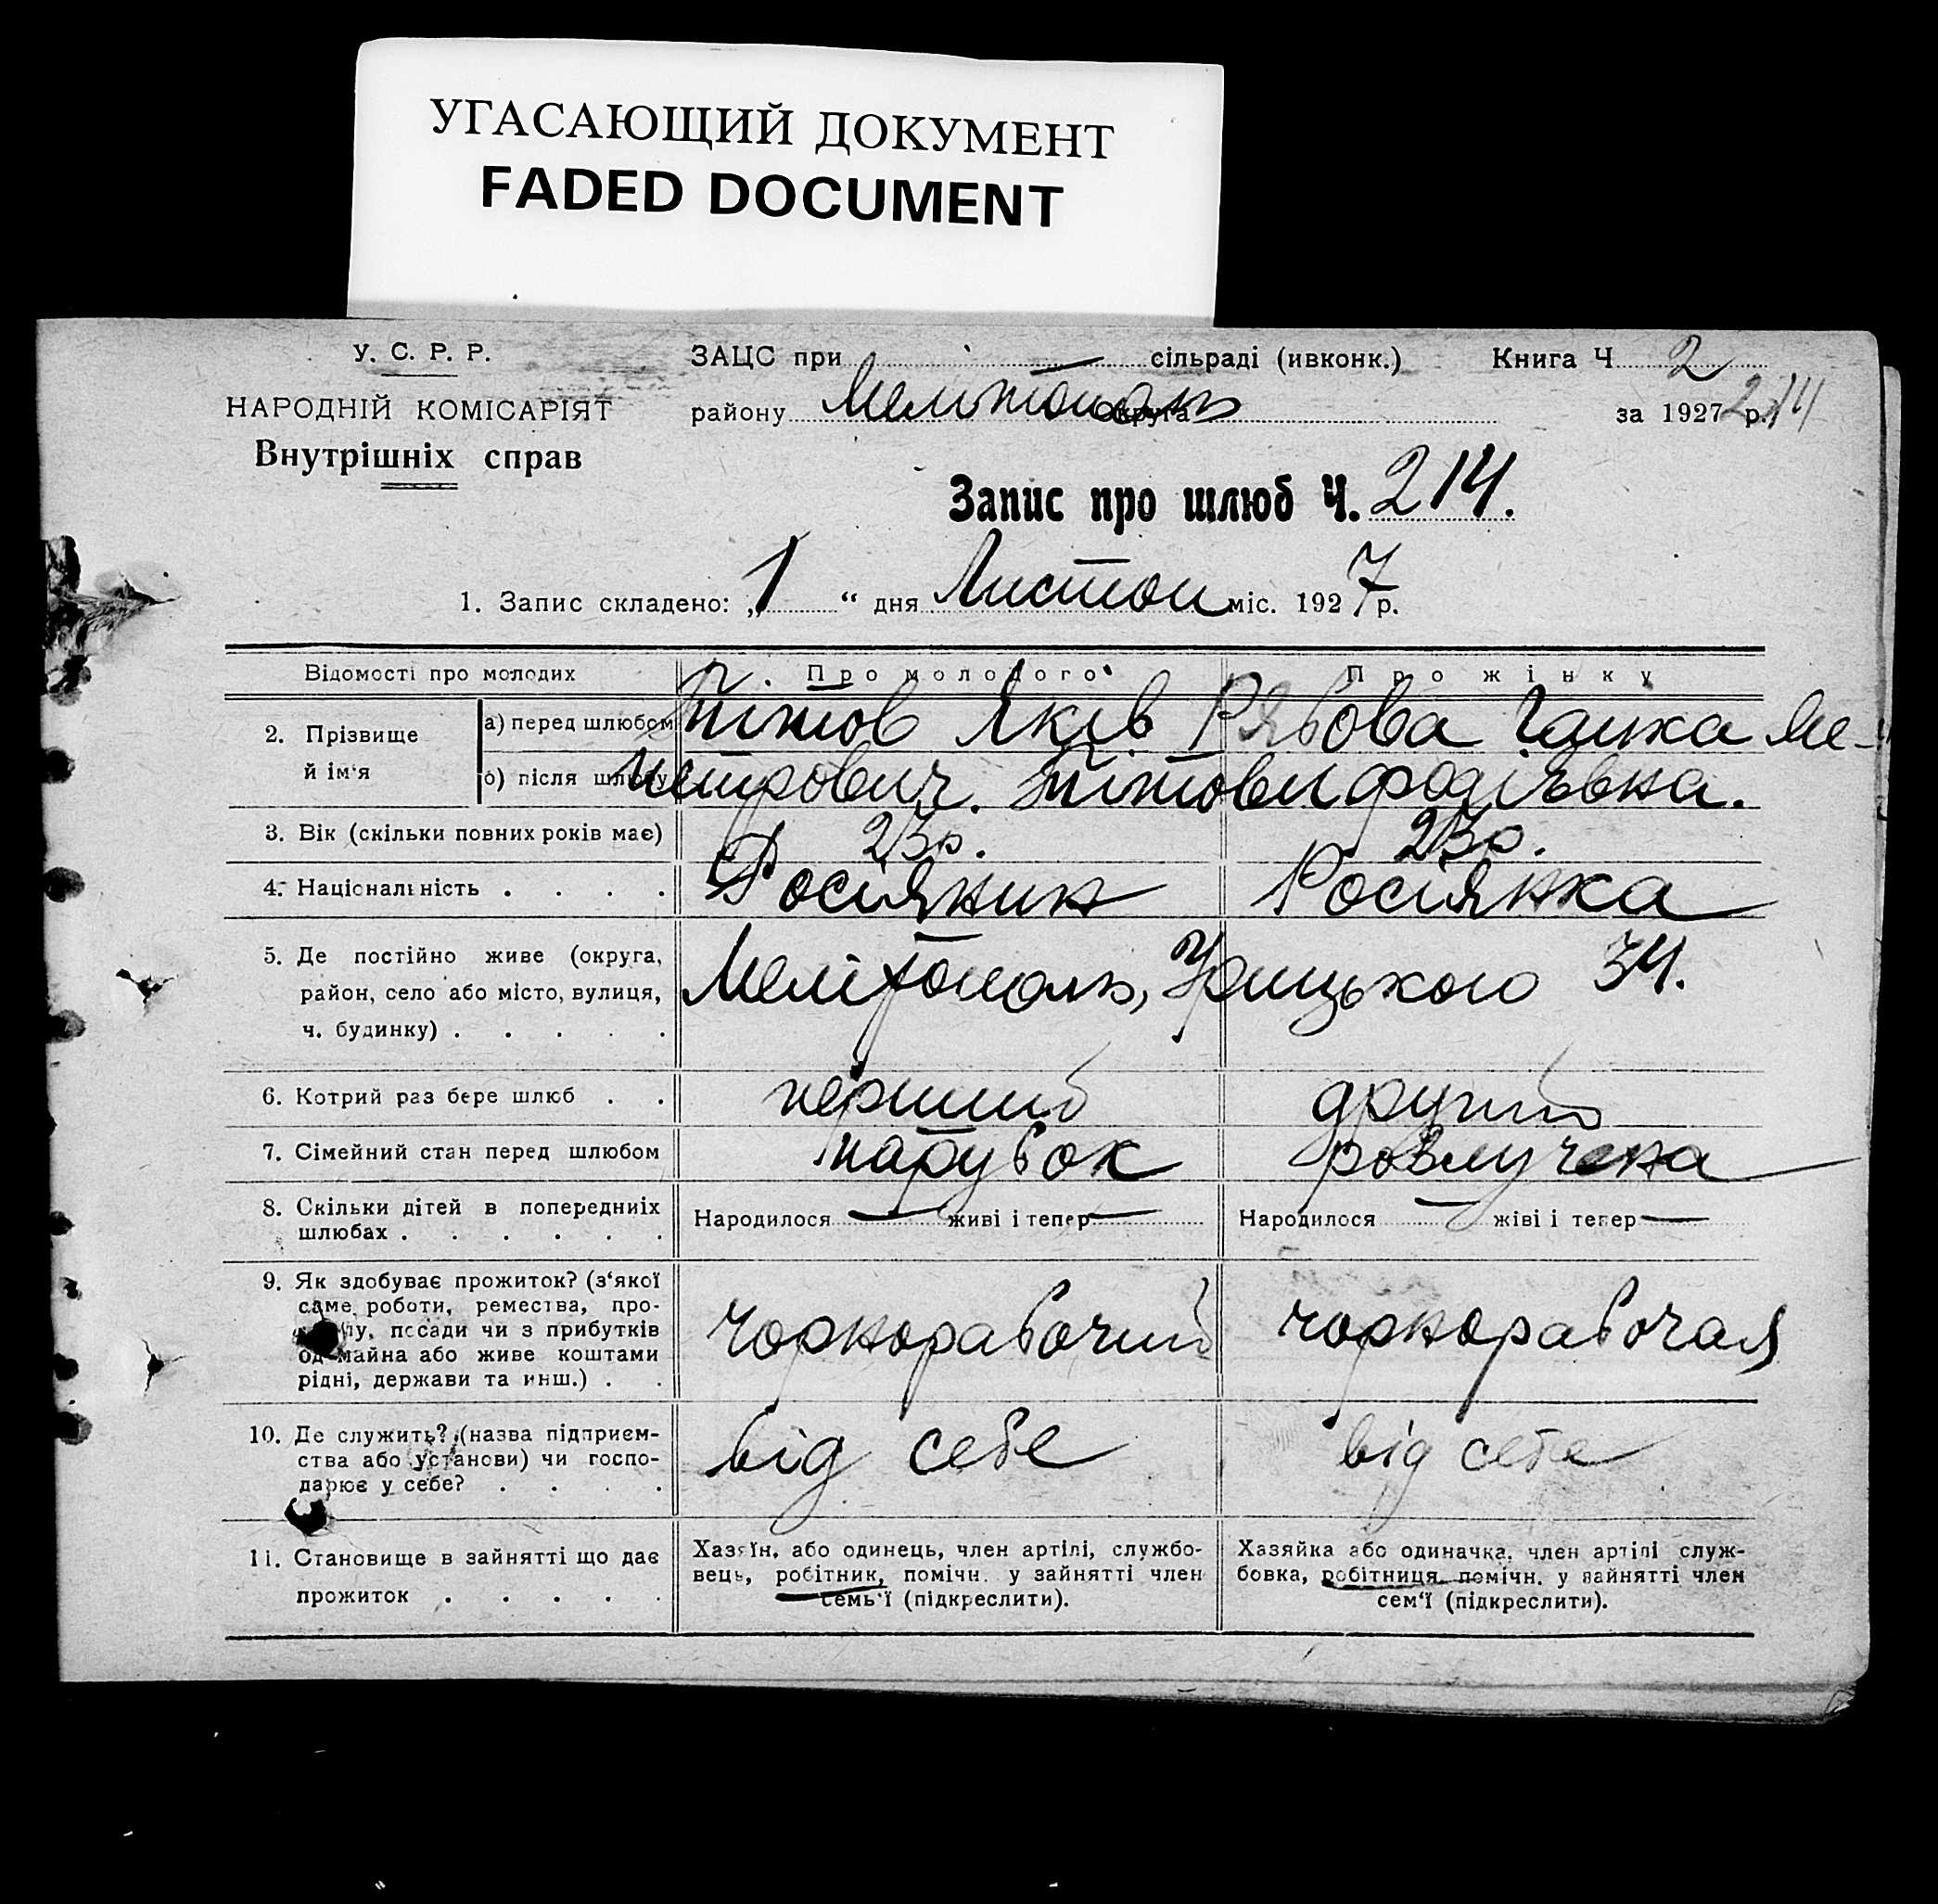 УГАСАЮЩИЙ ДОКУМЕНТ
FADED DOCUMENT
У. С. Р. Р.
НАРОДНІЙ КОМІСАРІЯТ
Внутрішніх справ
ЗАЦС при сільраді (ивконк.) Книга Ч 2
району Мелітополь округа за 1927 р. 214
Запис про шлюб Ч. 214.
1. Запис складено: „1“ дня Листоп міс. 1927 р.
Відомості про молодих Про молодого Про жінку
2. Прізвище й ім'я
а) перед шлюбом Тітов Яків Рябова Ганка Ме-
б) після шлюбу Титови
3. Вік (скільки повних років має) 23 р. 23 р.
4. Національність . . . . Росіянин Росіянка
5. Де постійно живе (округа,
район, село або місто, вулиця,
ч. будинку) . . . . .
Мелітополь, Урицького 34.
6. Котрий раз бере шлюб . . перший другий
7. Сімейний стан перед шлюбом парубок розлучена
8. Скільки дітей в попередніх
шлюбах . . . . . .
Народилося — живі і тепер — Народилося — жіві і тепер —
9. Як здобуває прожиток? (з'якої
саме роботи, ремества, про-
лу, посади чи з прибутків
од майна або живе коштами
рідні, держави та инш.) . .
чорнорабочий чорнорабочая
10. Де служить? (назва підприєм-
ства або установи) чи госпо-
дарює у себе? . . . .
від себе від себе
11. Становище в зайнятті що дає
прожиток . . . . .
Хазяїн, або одинець, член артілі, службо-
вець, робітник, помічн. у зайнятті член
семь'ї (підкреслити).
Хазяйка або одиначка, член артілі служ-
бовка, робітниця, помічн. у зайнятті член
сем'ї (підкреслити).